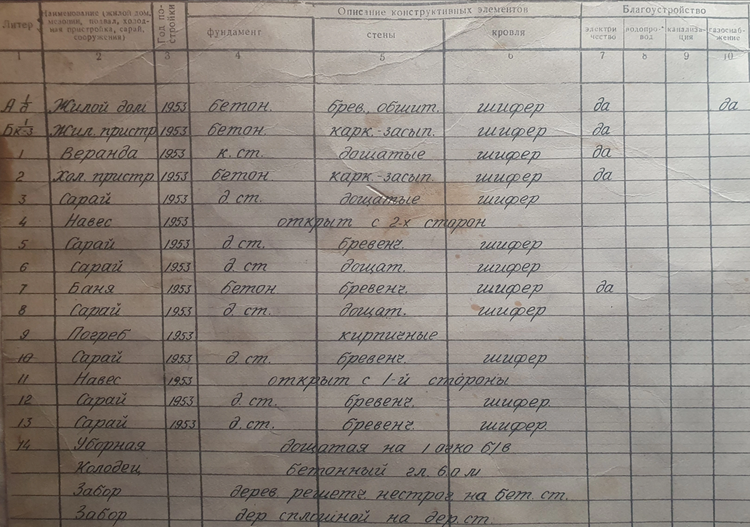 Описание конструктивных элементов Благоустройство
Литер Наименование (жилой дом, мезонин, подвал, холодная пристройка, сарай, сооружения) Год постройки фундамент стены кровля электричество водопровод канализация газоснабжение
1 2 3 4 5 6 7 8 9 10
А Жилой дом 1953 бетон. брев., обшит. шифер да да
Жил. пристр 1953 бетон. карк.-засып. шифер да
1 Веранда 1953 к. ст. дощатые шифер да
2 Хол. пристр 1953 бетон карк.-засып шифер да
3 Сарай 1953 д. ст. дощатые шифер
4 Навес 1953 открыт с 2-х сторон
5 Сарай 1953 д. ст. бревенч. шифер
6 Сарай 1953 д. ст дощат. шифер
7 Баня 1953 бетон бревенч. шифер да
8 Сарай 1953 д. ст. дощат. шифер
9 Погреб 1953 кирпичные
10 Сарай 1953 д. ст. бревенч. шифер
11 Навес 1953 открыт с 1-й стороны
12 Сарай 1953 д. ст. бревенч. шифер.
13 Сарай 1953 д. ст. бревенч. шифер.
14 Уборная дощатая на 1 очко б/в
Колодец бетонный гл. 6.0 м
Забор дерев решетч нестрог на бет. ст.
Забор дер сплошной на дер. ст.